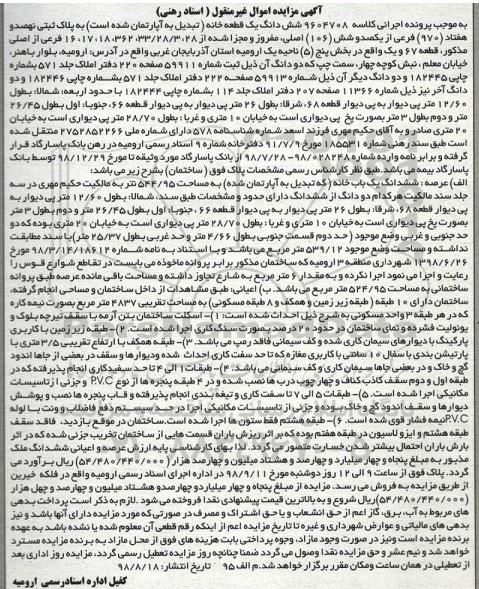 آگهی مزایده اموال غیرمنقول ( اسناد رهنی)
به موجب پرونده اجرائی کلاسه ۹۶۰۴۷۰۸ شش دانگ یک قطعه خانه ( تبدیل به آپارتمان شده است) به پلاک ثبتی نهصدو
هفتاد (۹۷۰) فرعی از یکصدو شش (۱۰۶) اصلی، مفروز و مجزا شده از ۳۳/۲۸/۳۶۲،۱۸،۱۷،۱۶ فرعی از اصلی
مذکور، قطعه ۶۷ و یک واقع در بخش پنج (۵) ناحیه یک ارومیه استان آذربایجان غربی واقع در آدرس: ارومیه، بلوار باهنر،
خیابان معلم ، نبش کوچه چهار، سمت چپ که دو دانگ آن ذیل ثبت شماره ۵۹۹۱۱ صفحه ۲۲۰ دفتر املاک جلد ۵۷۱ بشماره
چاپی ۱۸۲۴۴۵ و دو دانگ دیگر آن ذیل شماره ۵۹۹۱۳ صفحه ۲۲۲ دفتر املاک جلد ۵۷۱ بشماره چاپی ۱۸۲۴۴۶ و دو
دانگ آخر نیز ذیل شماره ۱۱۳۶۶ صفحه ۲۰۷ دفتر املاک جلد ۱۱۴ بشماره چاپی ۱۸۲۴۴۴ با حدود اربعه: شمالا: بطول
۱۲/۶۰ متر پی به دیوار به پی دیوار قطعه ۶۸، شرقا: بطول ۲۶ متر پی دیوار به پی دیوار قطعه ۶۶، جنوبا: اول بطول ۲۶/۴۵
متر و دوم بطول ۳ متر بصورت پخ پی دیواری است به خیابان ۱۰ متری و غربا : بطول ۲۸/۷۰ متر پی دیواری است به خیابان
۲۰ متری صادر و به آقای حکیم مهری فرزند اسعد شماره شناسنامه ۵۷۸ دارای شماره ملی ۲۷۵۲۸۵۲۲۶۶ منتقل شده
است طبق سند رهنی شماره ۱۸۵۵۳۱ مورخ ۹۱/۷/۹ دفترخانه شماره ۹ اسناد رسمی ارومیه در رهن بانک پاسارگاد قرار
گرفته و برابر نامه وارده شماره ۹۸/۰۲۸۲۴۸ - ۹۸/۷/۲۸ از بانک پاسارگاد مورد وثیقه تا مورخ ۹۸/۱۲/۲۹ توسط بانک
پاسارگاد بیمه می باشد. طبق نظر کارشناس رسمی مشخصات پلاک فوق ( ساختمان) بشرح زیر می باشد:
الف) عرصه: ششدانگ یک باب خانه (که تبدیل به آپارتمان شده ) به مساحت ۵۴۴/۹۵ متر به مالکیت حکیم مهری در سه
جلد سند مالکیت هرکدام دو دانگ از ششدانگ دارای حدود و مشخصات طبق سند. شمالا: بطول ۱۲/۶۰ متر پی دیوار به
پی دیوار قطعه ۶۸، شرقا: بطول ۲۶ متر پی دیوار به پی دیوار قطعه ۶۶، جنوبا: اول بطول ۲۶/۴۵ متر و دوم بطول ۳ متر
بصورت پخ پی دیواری است به خیابان ۱۰ متری و غربا : بطول ۲۸/۷۰ متر پی دیواری است به خیابان ۲۰ متری بوده که دو
حد جنوبی و غربی وضع موجود ( حد دوم قسمت جنوبی بطول ۴/۶۶ متر و حد غربی بطول ۲۵/۳۷ متر) با سند مطابقت
نداشته و مساحت وضع موجود ۵۳۹/۱۲ متر مربع می باشد و با استناد به نامه شماره ۹۸/۳/۱۲-۱۸۶۱۲ مورخ
۱۳۹۸/۶/۲۶ شهرداری منطقه ۳ ارومیه که ساختمان مذکور برابر پروانه ماخوذه می بایست در تقاطع شوارع قوس را
رعایت و اجرا می نمود اجرا نکرده و به مقدار ۶ متر مربع به شارع تجاوز داشته و مساحت باقی مانده عرصه طبق پروانه
ساختمانی به مساحت ۵۲۴/۹۵ متر مربع می باشد. ب) اعیانی: طبق مشاهدات از داخل ساختمان و مساحی انجام گرفته،
ساختمان دارای ۱۰ طبقه ( طبقه زیر زمین و همکف و ۸ طبقه مسکونی) به مساحت تقریبی ۴۸۳۷ متر مربع بصورت نیمه کاره
که در هر طبقه ۳ واحد مسکونی به شرح ذیل احداث شده است: ۱)- اسکلت ساختمان بتن آرمه با سقف تیرچه بلوک و
یونولیت فشرده و نمای ساختمان در حدود ۲۰ درصد بصورت سنگ کاری اجرا شده است. ۲)- طبقه زیر زمین با کاربری
پارکینگ با دیوارهای سیمان کاری شده و کف سیمانی فاقد درب می باشد. ۳)- طبقه همکف با ارتفاع تقریبی ۳/۵ متری با
پارتیشن بندی با سفال ۱۰ سانتی با کاربری مغازه که تا حد سفت کاری احداث شده ودیوارها و سقف در بعضی از جاها اندود
گچ و خاک و در بعضی جاها سیمان کاری و کف سیمانی می باشد. ۴)- طبقات ۱ الی ۴ تا حد سفیدکاری انجام پذیرفته که در
طبقه اول و دوم سقف کاذب کناف و چهارچوب درب ها نصب شده و در ۴ طبقه پنجره ها از نوع P.V.C و جزئی از تاسیسات
مکانیکی اجرا شده است. ۵)- طبقات ۵ الی ۷ تا سفت کاری و تیغه بندی انجام پذیرفته و قاب پنجره ها نصب و پوشش
دیوارها و سقف اندود گچ و خاک بوده و جزئی از تاسیسات مکانیکی اجرا در حد سیستم دفع فاضلاب و ونت با لوله
P.V.Cنیمه فشار قوی شده است. ۶)- طبقه هشتم فقط ستون ها اجرا شده است.ساختمان در موقع بازدید، فاقد سقف
طبقه هشتم و ایزو لاسیون در طبقه هفتم بوده که در اثر ریزش باران قسمت هایی از ساختمان تخریب جزئی شده که در اثر
بارش باران احتمال بیشتر شدن خسارت متصور می گردد. لذا بهای کارشناسی پایه ارزش عرصه و اعیانی ششدانگ ملک
مذبور به مبلغ پنجاه و چهار میلیارد و چهارصد و هشتاد میلیون و چهارصد هزار (۵۴/۴۸۰/۴۴۰/۰۰۰) ریال برآورد می
گردد. پلاک فوق از ساعت ۹ الی ۱۲ روز دوشنبه مورخ ۹۸/۹/۱۱ در اداره اجرای اسناد رسمی ارومیه واقع در فلکه خیرین
از طریق مزایده به فروش می رسد. مزایده از مبلغ پنجاه و چهار میلیاردو چهارصدو هشتاد میلیون و چهارصد و چهل هزار
(۵۴/۴۸۰/۴۴۰/۰۰۰)ریال شروع و به بالاترین قیمت پیشنهادی نقدا فروخته می شود .لازم به ذکر است پرداخت بدهی
های مربوط به آب، برق، گاز اعم از حق انشعاب و یا حق اشتراک و مصرف در صورتی که مورد مزایده دارای آنها باشد و نیز
بدهی های مالیاتی و عوارض شهرداری و غیره تا تاریخ مزایده اعم از اینکه رقم قطعی آن معلوم شده یا نشده باشد به عهده
برنده مزایده است ونیز در صورت وجود مازاد، وجوه پرداختی بابت هزینه های فوق از محل مازاد به برنده مزایده مسترد
خواهد شد و نیم عشر و حق مزایده نقدا وصول می گردد ضمنا چنانچه روز مزایده تعطیل رسمی گردد، مزایده روز اداری بعد
از تعطیلی در همان ساعت ومکان مقرر برگزار خواهد شد.م الف ۹۵ تاریخ انتشار: ۹۸/۸/۱۸
کفیل اداره اسنادرسمی ارومیه